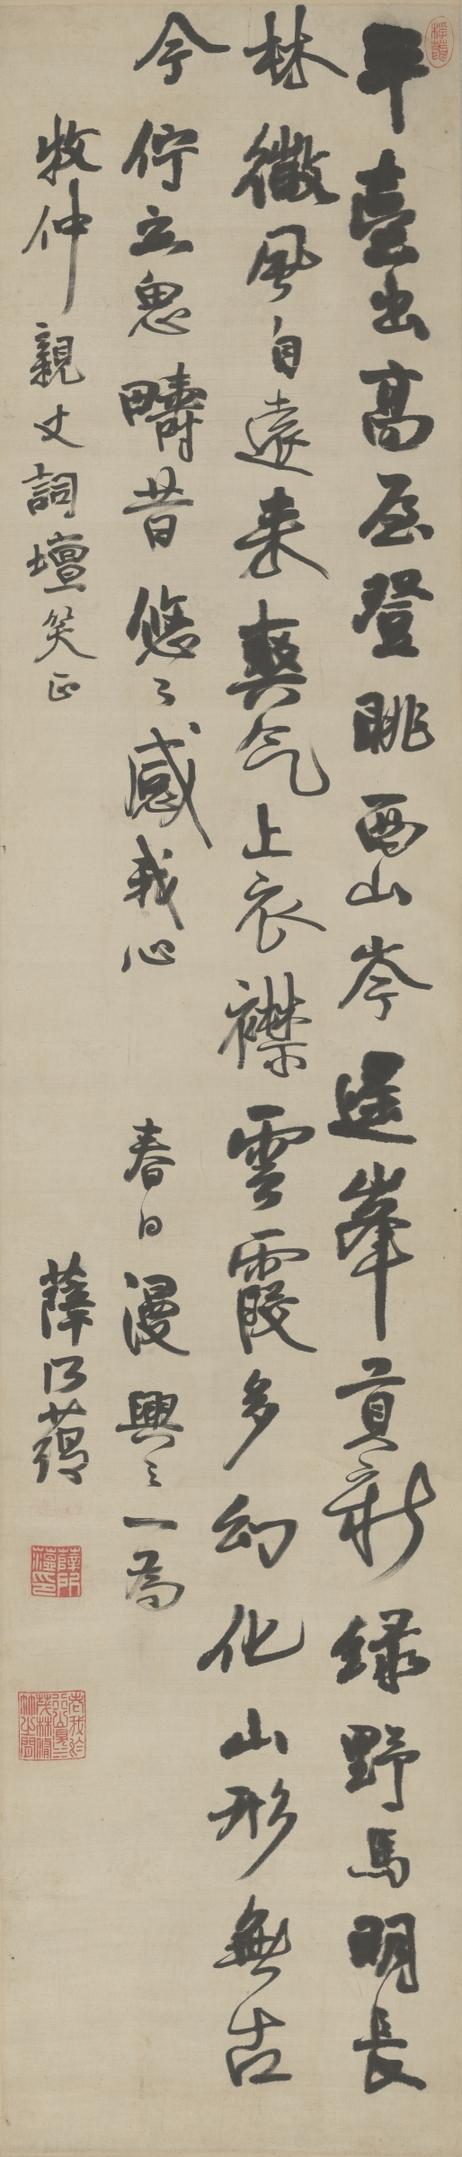 平臺出高屋登眺西山岑遥峯貢新綠野馬明長
林微風自遠来爽气上衣襟雲霞多幻化山形無古
今佇立思疇昔悠〻感我心 春日漫興之一為
牧仲親丈詞壇笑正 薛所蘊
薛所蘊印